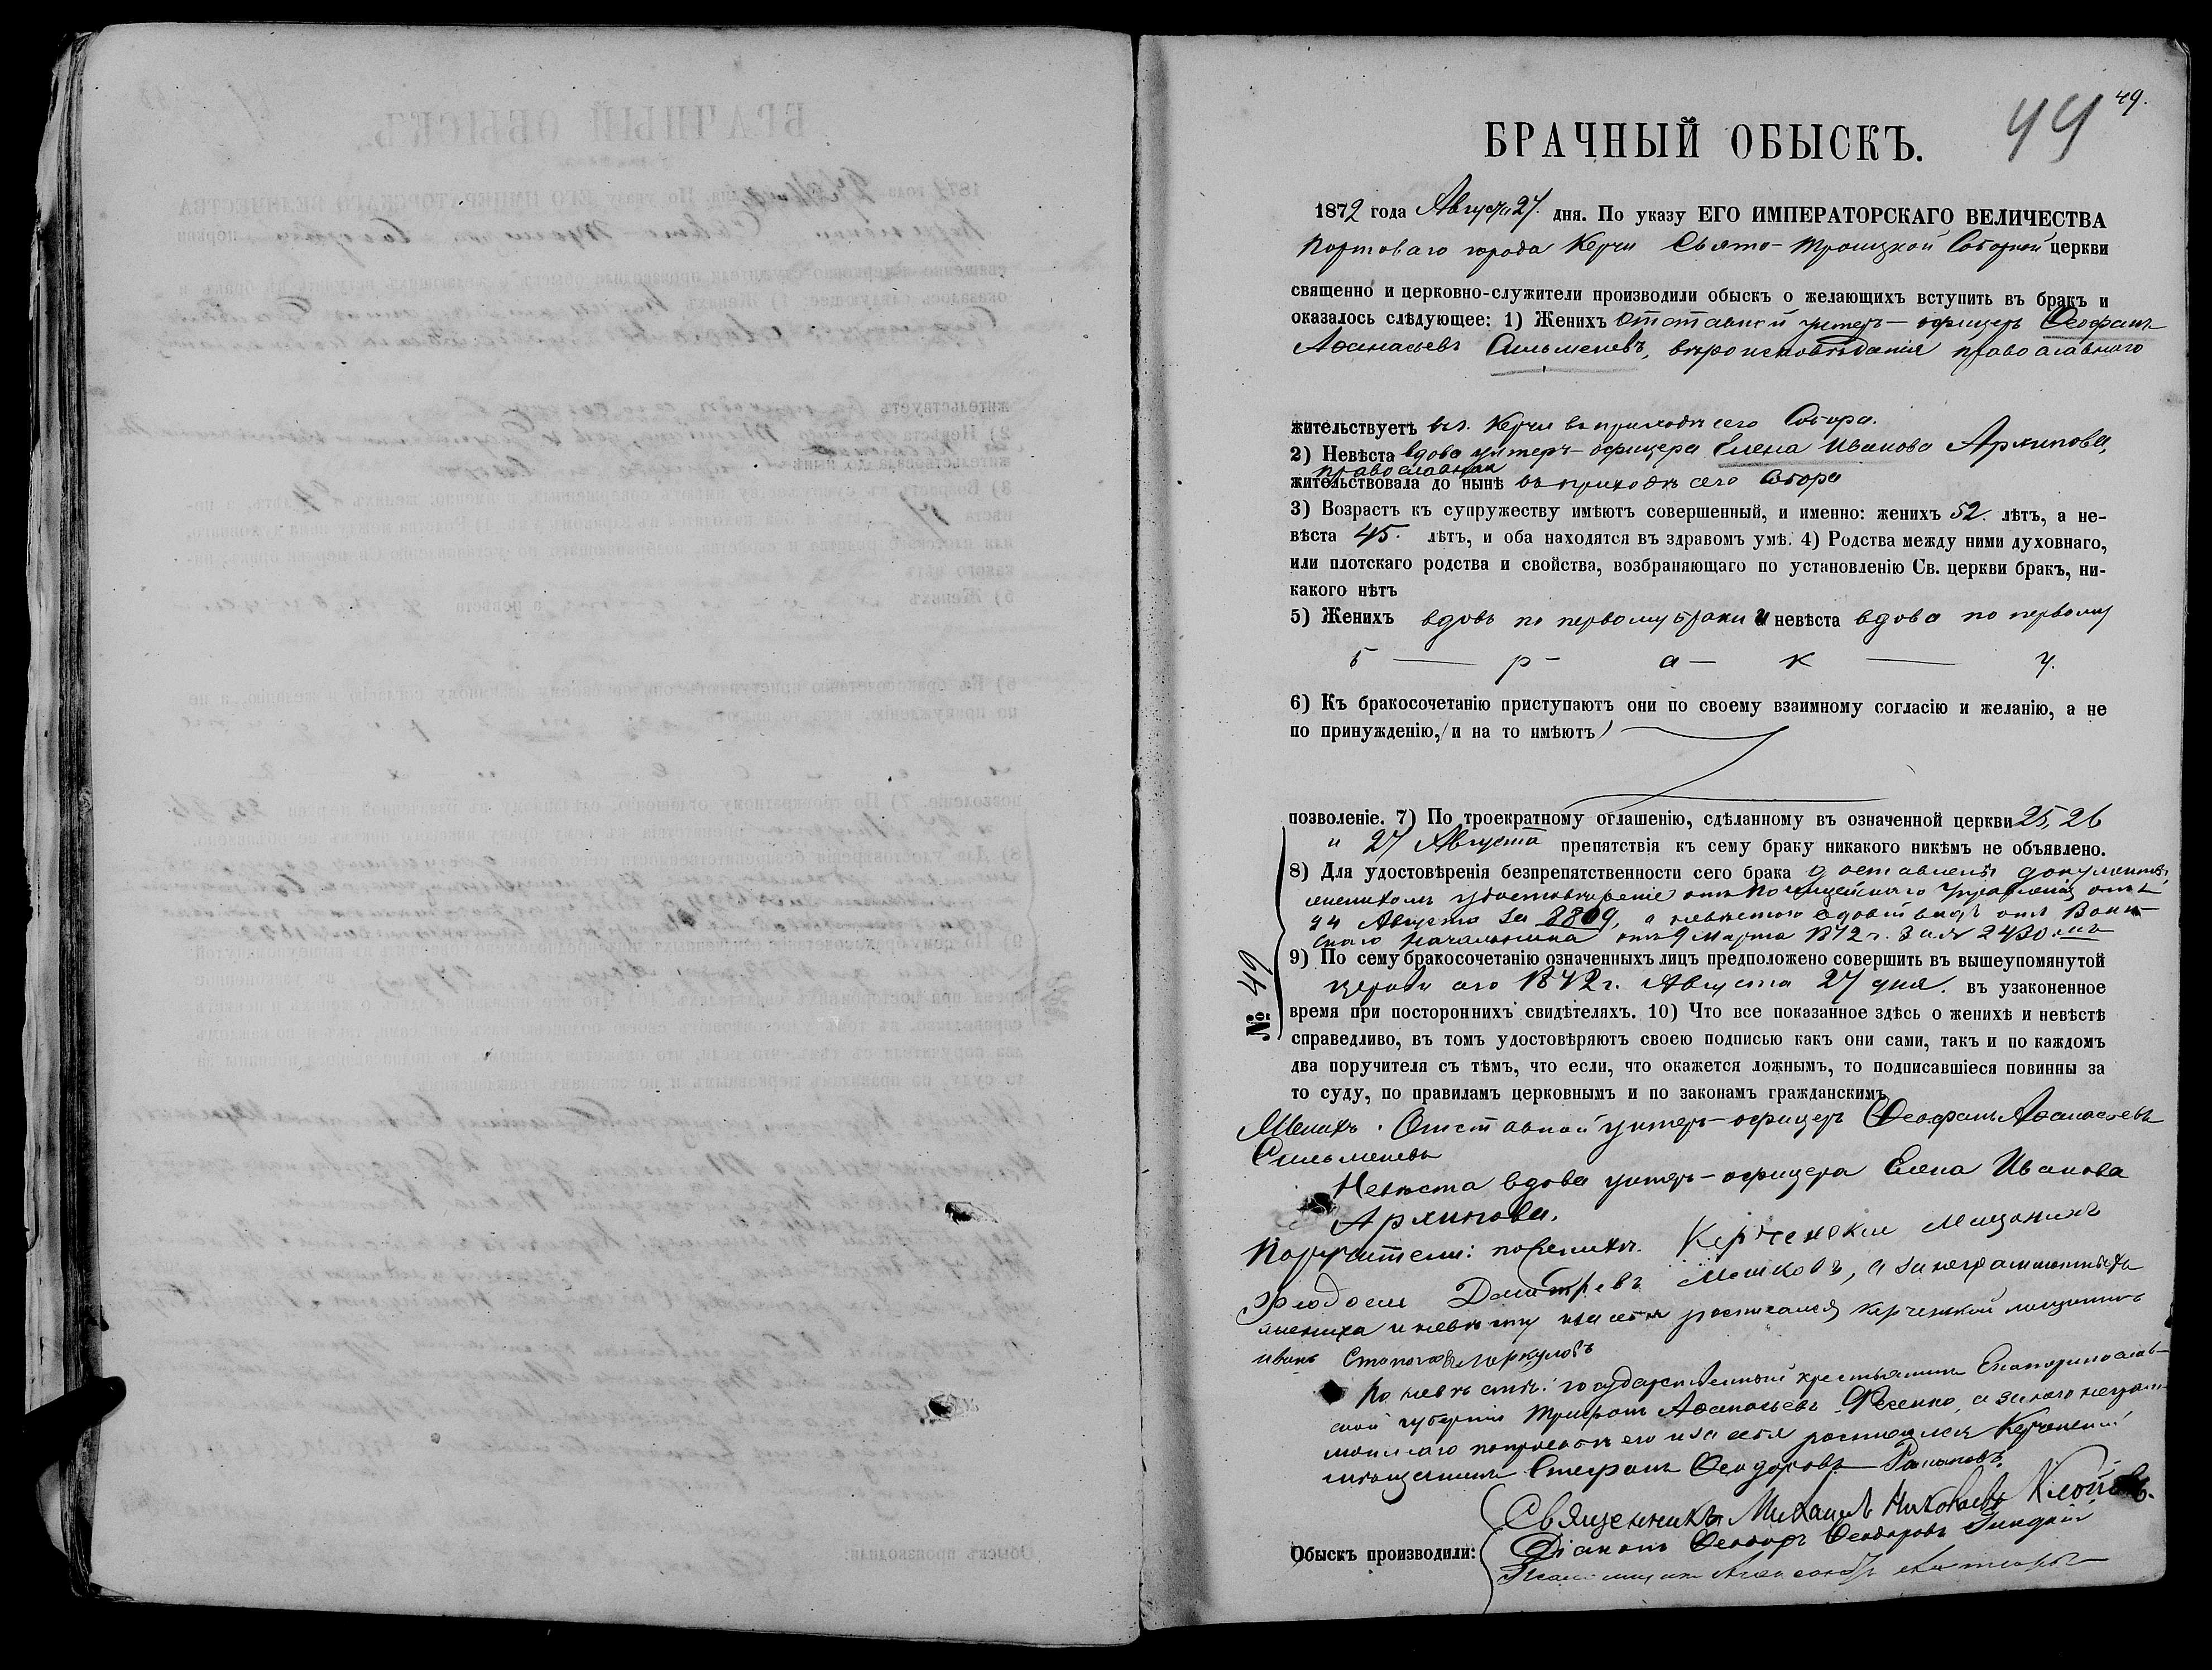 49.
44
БРАЧНЫЙ ОБЫСКЪ.
1872 года Августа 27. дня. По указу ЕГО ИМПЕРАТОРСКАГО ВЕЛИЧЕСТВА
Портоваго города Керчи Свято-Троицкой Соборной церкви
священно и церковно-служители производили обыскъ о желающихъ вступить въ бракъ и
оказалось слѣдующее: 1) Женихъ Отставной унтеръ-офицеръ Ѳеофанъ
Аѳанасьевъ Сильменевъ, вѣроисповѣданія православнаго
жительствуетъ въ г. Керчи въ приходѣ сего Собора.
2) Невѣста вдова унтеръ-офицера Елена Иванова Архипова,
православная
жительствовала до нынѣ въ приходѣ сего Собора
3) Возрастъ къ супружеству имѣютъ совершенный, и именно: женихъ 52. лѣтъ, а не-
вѣста 45. лѣтъ, и оба находятся въ здравомъ умѣ. 4) Родства между ними духовнаго,
или плотскаго родства и свойства, возбраняющаго по установленію Св. церкви бракъ, ни-
какого нѣтъ
5) Женихъ вдовъ по первому браку и невѣста вдова по первому
б — р — а — к — у.
6) Къ бракосочетанію приступаютъ они по своему взаимному согласію и желанію, а не
по принужденію, (и на то имѣютъ)
позволеніе. 7) По троекратному оглашенію, сдѣланному въ означенной церкви 25, 26
и 27 Августа препятствія къ сему браку никакого никѣмъ не объявлено.
8) Для удостовѣренія безпрепятственности сего брака доставлены документы,
женихомъ удостовѣреніе отъ Полицейскаго Управленія отъ
24 Августа за 8809, а невѣстою вдовій видъ отъ Воин-
скаго Начальника отъ 9 Марта 1872 г. за № 2430.
9) По сему бракосочетанію означенныхъ лицъ предположено совершить въ вышеупомянутой
церкви сего 1872 г. Августа 27 дня. въ узаконенное
№ 49
время при постороннихъ свидѣтеляхъ. 10) Что все показанное здѣсь о женихѣ и невѣстѣ
справедливо, въ томъ удостовѣряютъ своею подписью какъ они сами, такъ и по каждомъ
два поручителя съ тѣмъ, что если, что окажется ложнымъ, то подписавшіеся повинны за
то суду, по правиламъ церковнымъ и по законамъ гражданскимъ
Женихъ. Отставной унтеръ-офицеръ Ѳеофанъ Аѳанасьевъ
Сильменевъ
Невѣста вдова унтеръ-офицера Елена Иванова
Архипова.
Поручители: по женихѣ. Керченскій Мещанинъ
Дмитревъ Мошковъ, а за неграмотныхъ
жениха и невѣсту и за себя росписался керченской мещанинъ
иванъ Меркуловъ
По невѣстѣ: государственный крестьянинъ Екатеринослав-
ской губерніи Трифонъ Аѳанасьевъ Фесенко, а за него неграм-
мотнаго по просьбѣ его и за себя росписался Керченскій
мещанинъ Стефанъ Ѳеодоровъ
Священникъ Михаилъ Николаевъ
Обыскъ производили: Діаконъ Ѳеодоръ Ѳеодоровъ